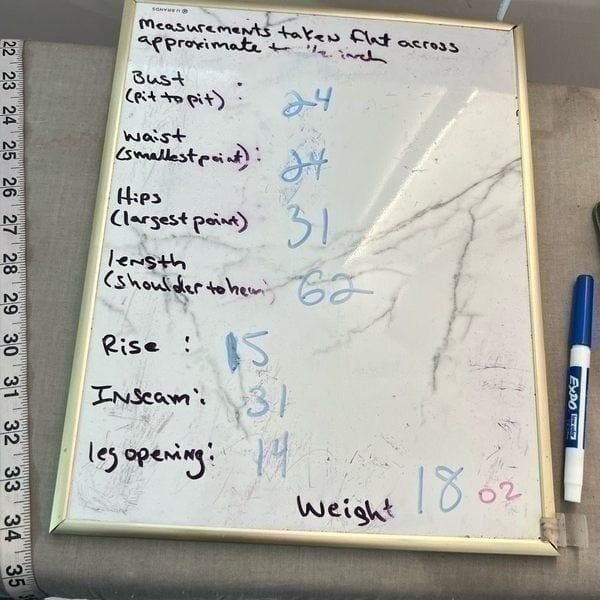 U BRANDS
Measurements taken flat across
approximate to 1/2 inch
Bust
(pit to pit) : 24
waist
(smallest point) : 24
Hips
(largest point) 31
length
(shoulder to hem) 62
Rise : 15
Inseam : 31
leg opening : 14
Weight 18 oz
EXPO
22
23
24
25
26
27
28
29
30
31
32
33
34
35